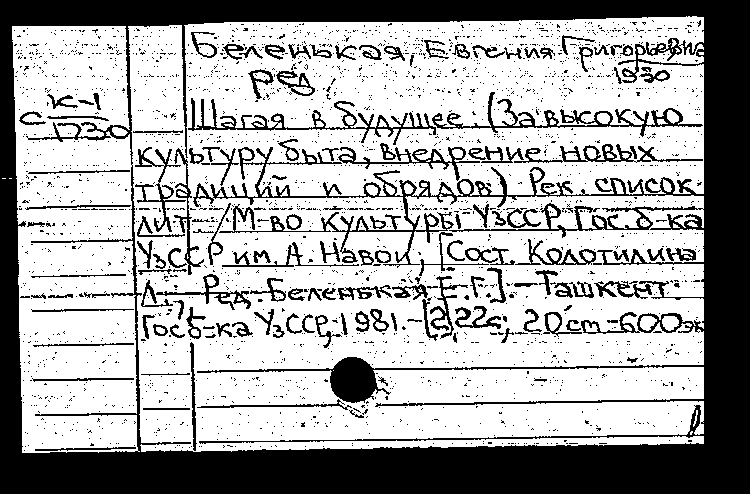 Беленькая, Евгения Григорьевна
1930
ред
С К-1
1730
Шагая в будущее. (За высокую
культуру быта, внедрение новых
традиций и обрядов). Рек. список
лит. / М-во культуры УзССР, Гос. б-ка
УзССР им. А. Навои; [Сост. Колотилина
Л., Ред. Беленькая Е.Г.]. - Ташкент:
Гос б-ка УзССР, 1981. - [2], 22с; 20 cm - 600 эк